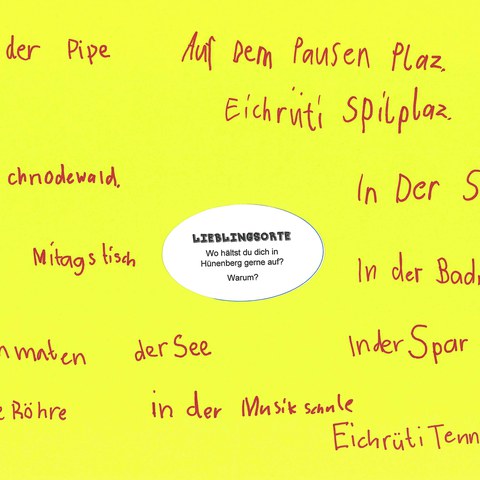 der Pipe
Auf Dem Pausen Plaz.
Eichrüti Spilplaz.
chnodewald.
In Der S
Mitagstisch
LIEBLINGSORTE
Wo hältst du dich in
Hünenberg gerne auf?
Warum?
In der Bad
nmaten
der See
In der Spar
e Röhre
in der Musikschule
Eichrüti Tenn